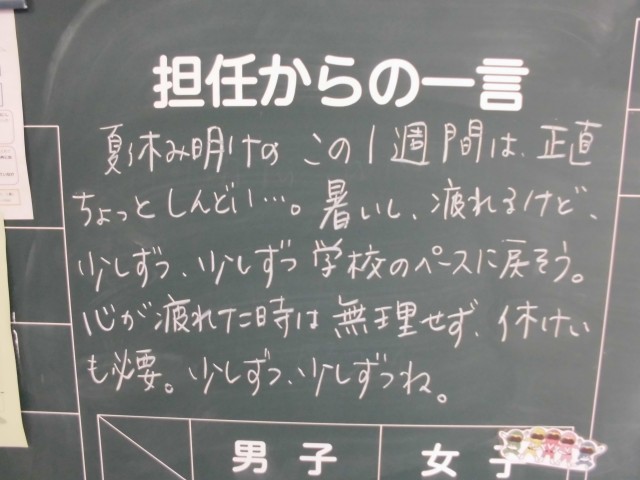 担任からの一言
夏休み明けの この1週間は、正直
ちょっとしんどい…。暑いし、疲れるけど、
少しずつ、少しずつ学校のペースに戻そう。
心が疲れた時は無理せず、休けい
も必要。少しずつ、少しずつね。
男子
女子